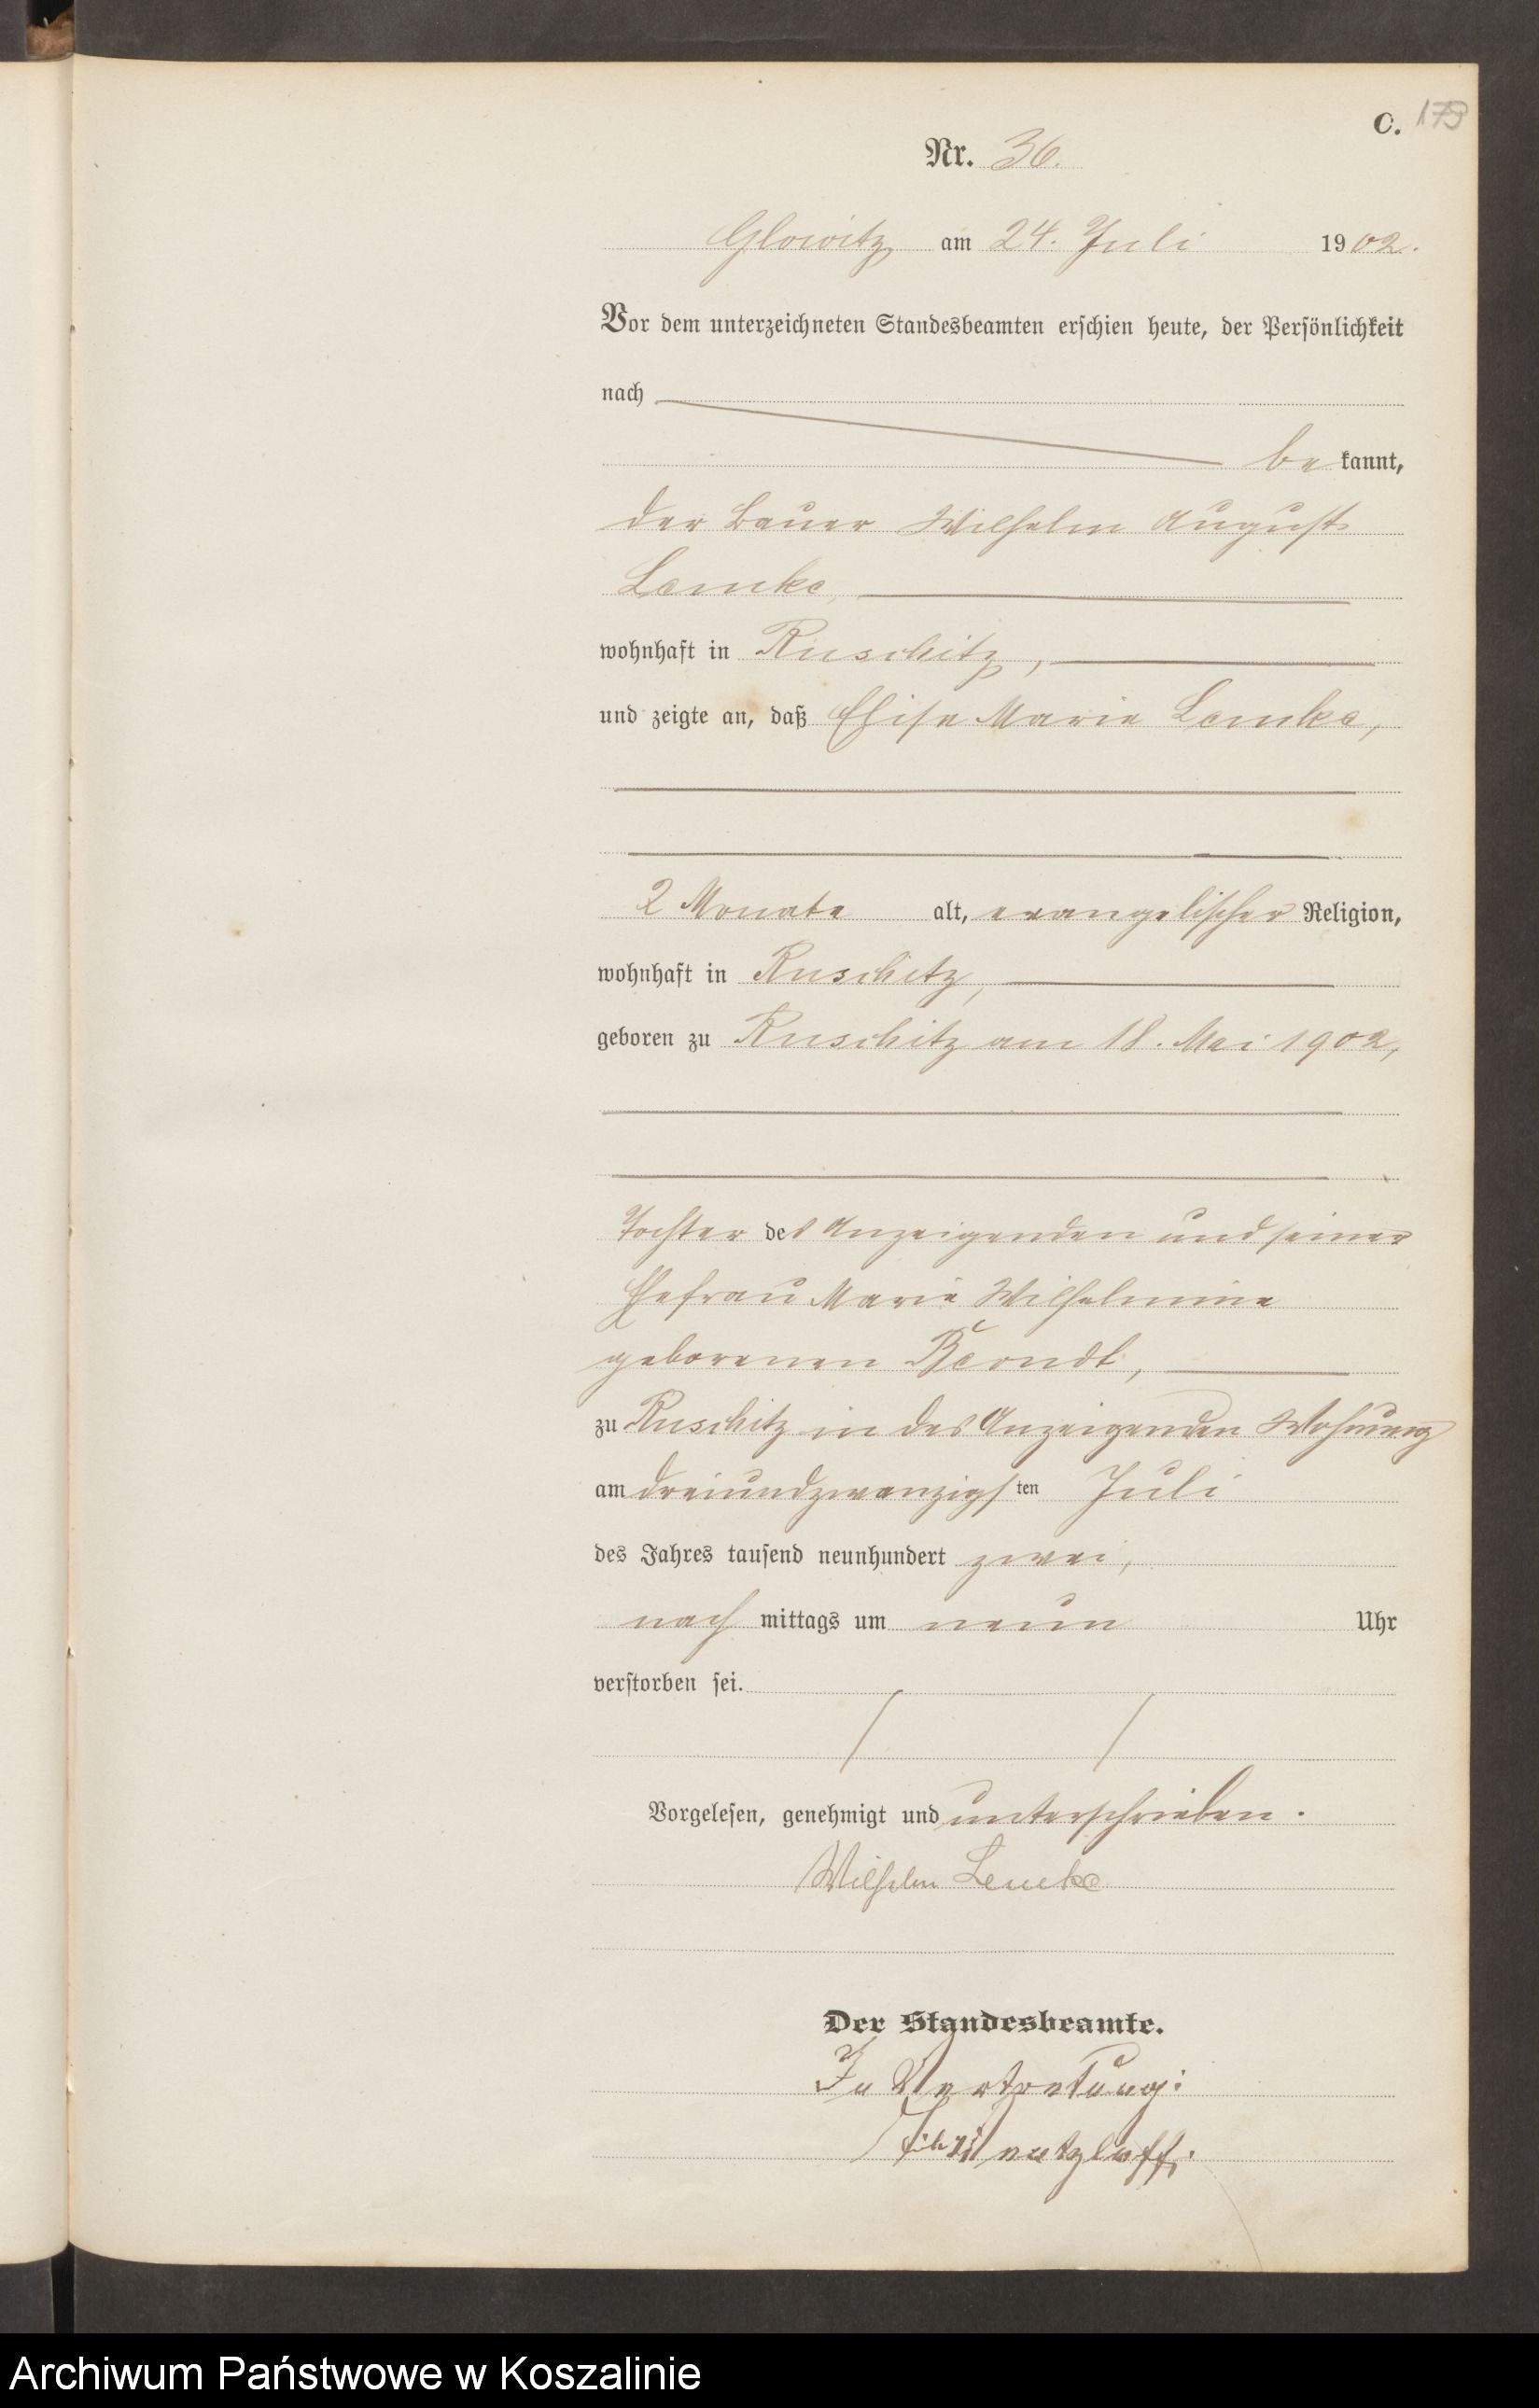 C. 173
Nr. 36.
Glowitz am 24. Juli 1902.
Vor dem unterzeichneten Standesbeamten erschien heute, der Persönlichkeit
nach
bekannt,
der Bauer Wilhelm August
Lemke,
wohnhaft in Ruschitz,
und zeigte an, daß Elise Marie Lemke,
2 Monate alt, evangelischer Religion,
wohnhaft in Ruschitz,
geboren zu Ruschitz am 18. Mai 1902,
Tochter des Anzeigenden und seiner
Ehefrau Marie Wilhelmine
geborenen Berndt,
zu Ruschitz in des Anzeigenden Wohnung
am dreiundzwanzigsten Juli
des Jahres tausend neunhundert zwei,
nachmittags um neun Uhr
verstorben sei.
Vorgelesen, genehmigt und unterschrieben.
Wilhelm Lemke
Der Standesbeamte.
In Vertretung:
Archiwum Państwowe w Koszalinie